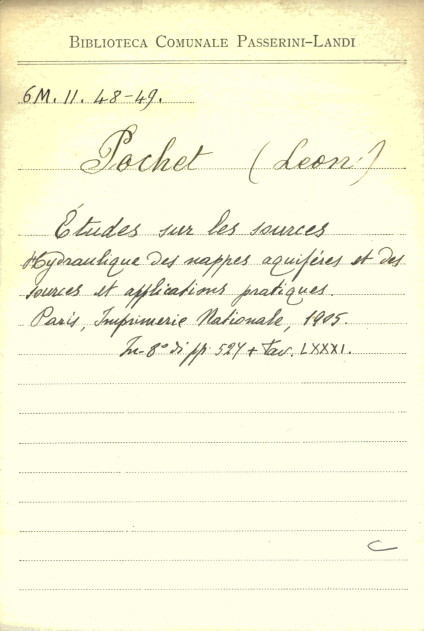 BIBLIOTECA COMUNALE PASSERINI-LANDI
6M. 11. 48-49.
Pochet (Leon)
Études sur les sources
Hydraulique des nappes aquifères et des
sources et applications pratiques.
Paris, Imprimerie Nationale, 1905.
In-8° di pp. 527 + tav. LXXXI.
C